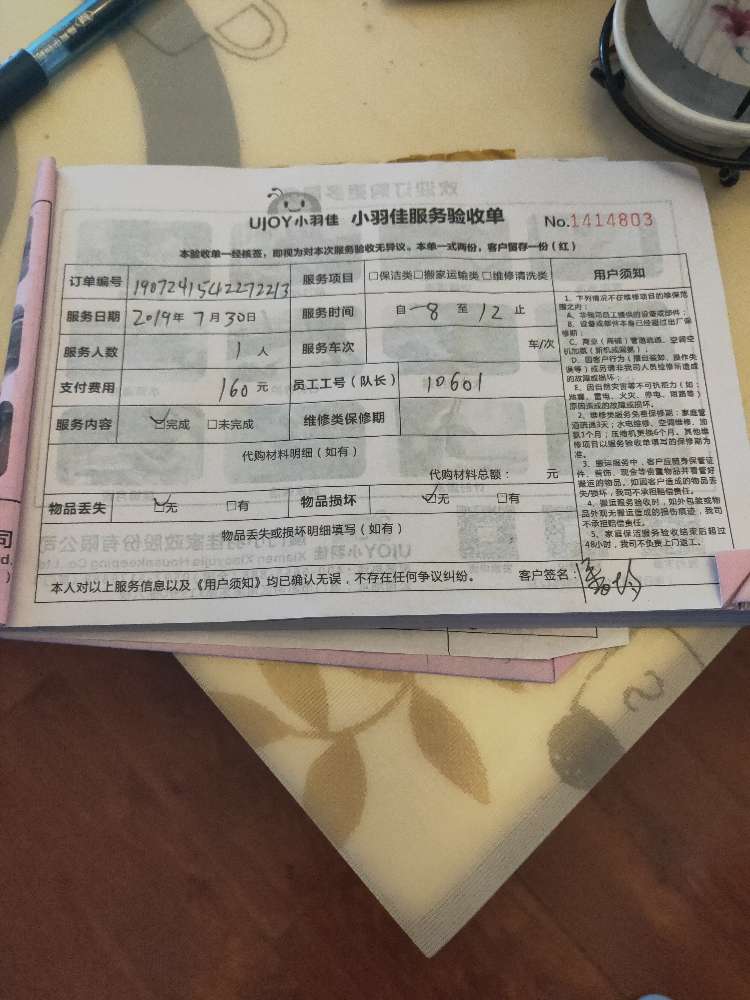 UJOY小羽佳 小羽佳服务验收单 No.1414803
本验收单一经核签，即视为对本次服务验收无异议。本单一式两份，客户留存一份（红）
订单编号 服务项目 □保洁类□搬家运输类□维修清洗类 用户须知
服务日期 2019年 7月30日 服务时间 自 8 至 12 止
服务人数 1 人 服务车次 车/次
支付费用 160 元 员工工号（队长） 10601
服务内容 ☑完成 □未完成 维修类保修期
代购材料明细（如有）
代购材料总额： 元
物品丢失 ☑无 □有 物品损坏 ☑无 □有
物品丢失或损坏明细填写（如有）
本人对以上服务信息以及《用户须知》均已确认无误，不存在任何争议纠纷。 客户签名：
1、下列情况不在维修项目的维保范
围之内：
A、非我司员工提供的设备或部件；
B、设备或部件本身已经超过出厂保
修期；
C、商业（商铺）管道疏通、空调空
机加氟（新机或漏氟）；
D、因客户行为（擅自装卸、操作失
误等）或另请非我司人员检修所造成
的故障或损坏；
E、因自然灾害等不可抗拒力（如：
地震、雷电、火灾、停电、短路等）
原因造成的故障或损坏。
2、维修类服务免费保修期：家庭管
道疏通3天；水电维修、空调维修、加
氟1个月；压缩机更换6个月。其他维
修项目以服务验收单填写的保修期为
准。
3、搬运服务中，客户应随身保管证
件、首饰、现金等贵重物品并看管好
搬运的物品。如因客户造成的物品丢
失/损坏，我司不承担赔偿责任。
4、搬运服务验收时，如外包装或物
品外观无搬运造成的损伤痕迹，我司
不承担赔偿责任。
5、家庭保洁服务验收结束后超过
48小时，我司不负责上门返工。